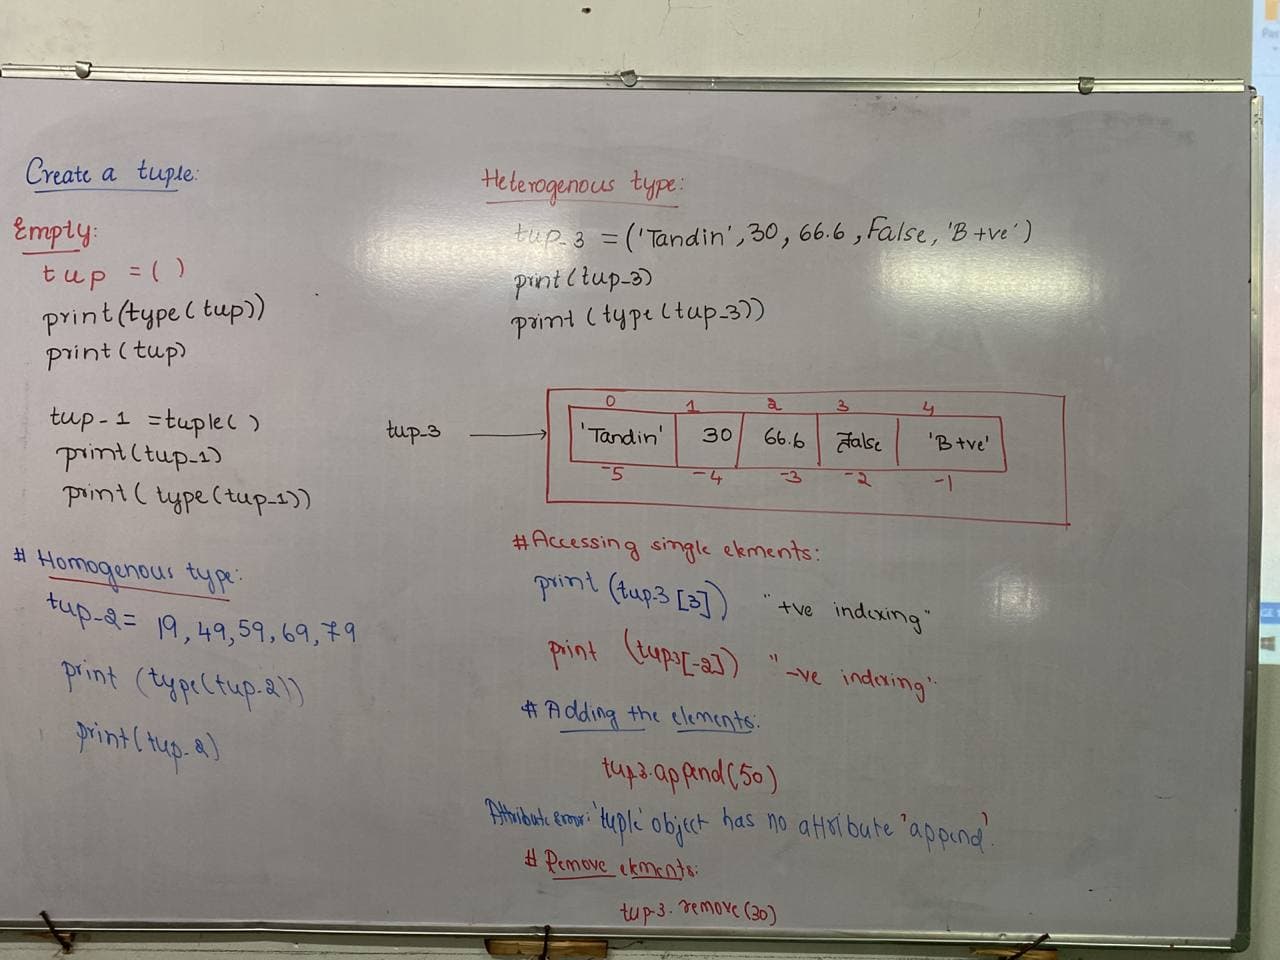 Create a tuple:
Empty:
tup = ( )
print(type(tup))
print(tup)
tup_1 = tuple( )
print(tup_1)
print( type(tup_1))
# Homogenous type:
tup_2 = 19, 49, 59, 69, 79
print (type(tup_2))
print(tup_2)
Heterogenous type:
tup_3 = ('Tandin', 30, 66.6, False, 'B+ve')
print(tup_3)
print (type(tup_3))
0 1 2 3 4
tup_3 'Tandin' 30 66.6 False 'B+ve'
-5 -4 -3 -2 -1
#Accessing single elements:
print (tup_3[3]) "+ve indexing"
print (tup3[-2]) "-ve indexing"
# Adding the elements:
tup3.append(50)
Attribute error: 'tuple' object has no attribute 'append'.
# Remove elements:
tup_3. remove(30)